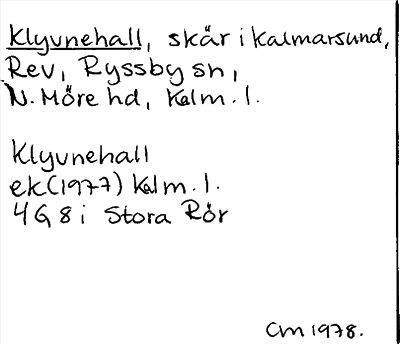 Klyvnehall, skär i Kalmarsund,
Rev, Ryssby sn,
N. Möre hd, Kalm. l.
Klyvnehall
ek (1977) Kalm. l.
4G 8i Stora Rör
Cm 1978.